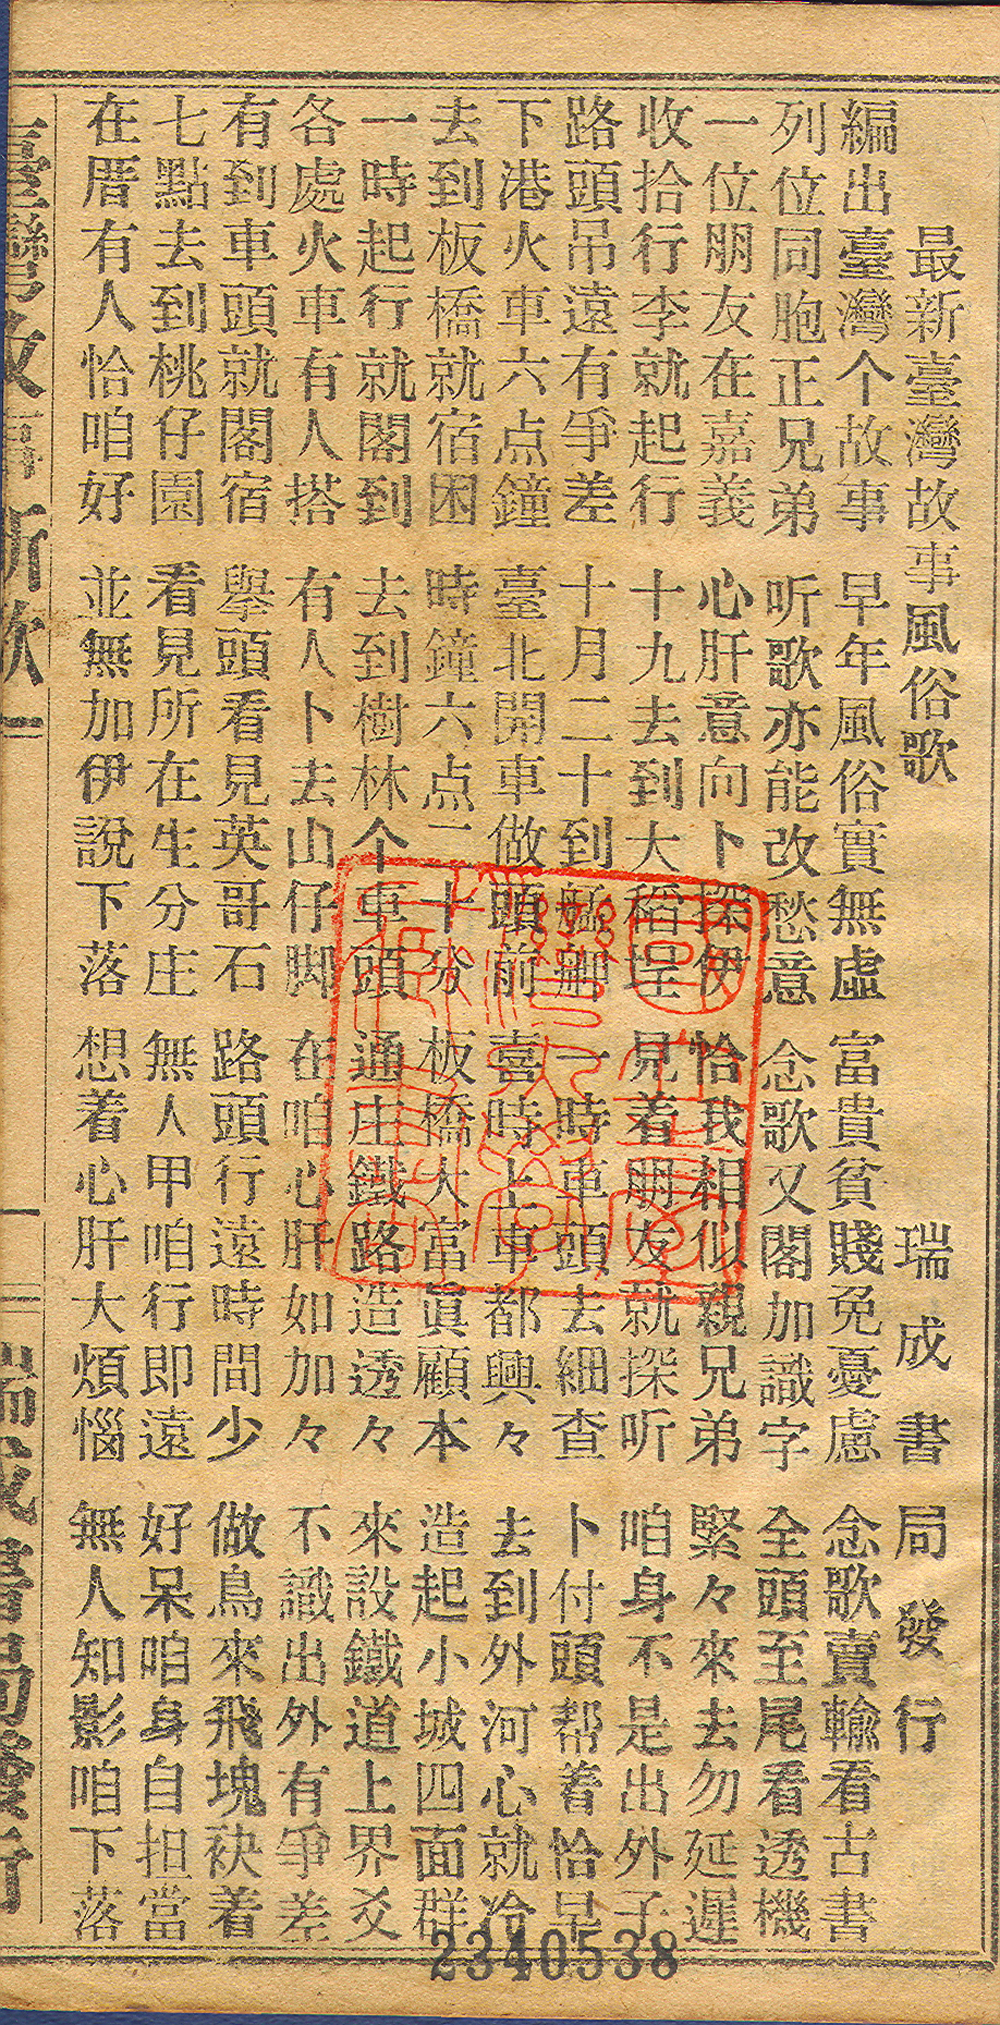 最新臺灣故事風俗歌 瑞成書局發行
編出臺灣个故事 早年風俗實無虛 富貴貧賤免憂慮 念歌賣輸看古書
列位同胞正兄弟 听歌亦能改愁意 念歌又閣加識字 全頭至尾看透機
一位朋友在嘉義 心肝意向卜探伊 恰我相似親兄弟 緊々來去勿延遲
收拾行李就起行 十九去到大稻埕 見着朋友就探听 咱身不是出外子
路頭吊遠有爭差 十月二十到艋舺 一時車頭去細查 卜付頭帮着恰早
下港火車六点鐘 臺北開車做頭前 喜時上車都興々 去到外河心就冷
去到板橋就宿困 時鐘六点二十分 板橋大富眞顧本 造起小城四面群
一時起行就閣到 去到樹林个車頭 通庄鐵路造透々 來設鐵道上界爻
各處火車有人搭 有人卜去山仔脚 在咱心肝如加々 不識出外有爭差
有到車頭就閣宿 舉頭看見英哥石 路頭行遠時間少 做鳥來飛塊袂着
七點去到桃仔園 看見所在生分庄 無人甲咱行即遠 好呆咱身自担當
在厝有人恰咱好 並無加伊說下落 想着心肝大煩惱 無人知影咱下落
臺灣故事新歌一 一 瑞成書局發行
2340538